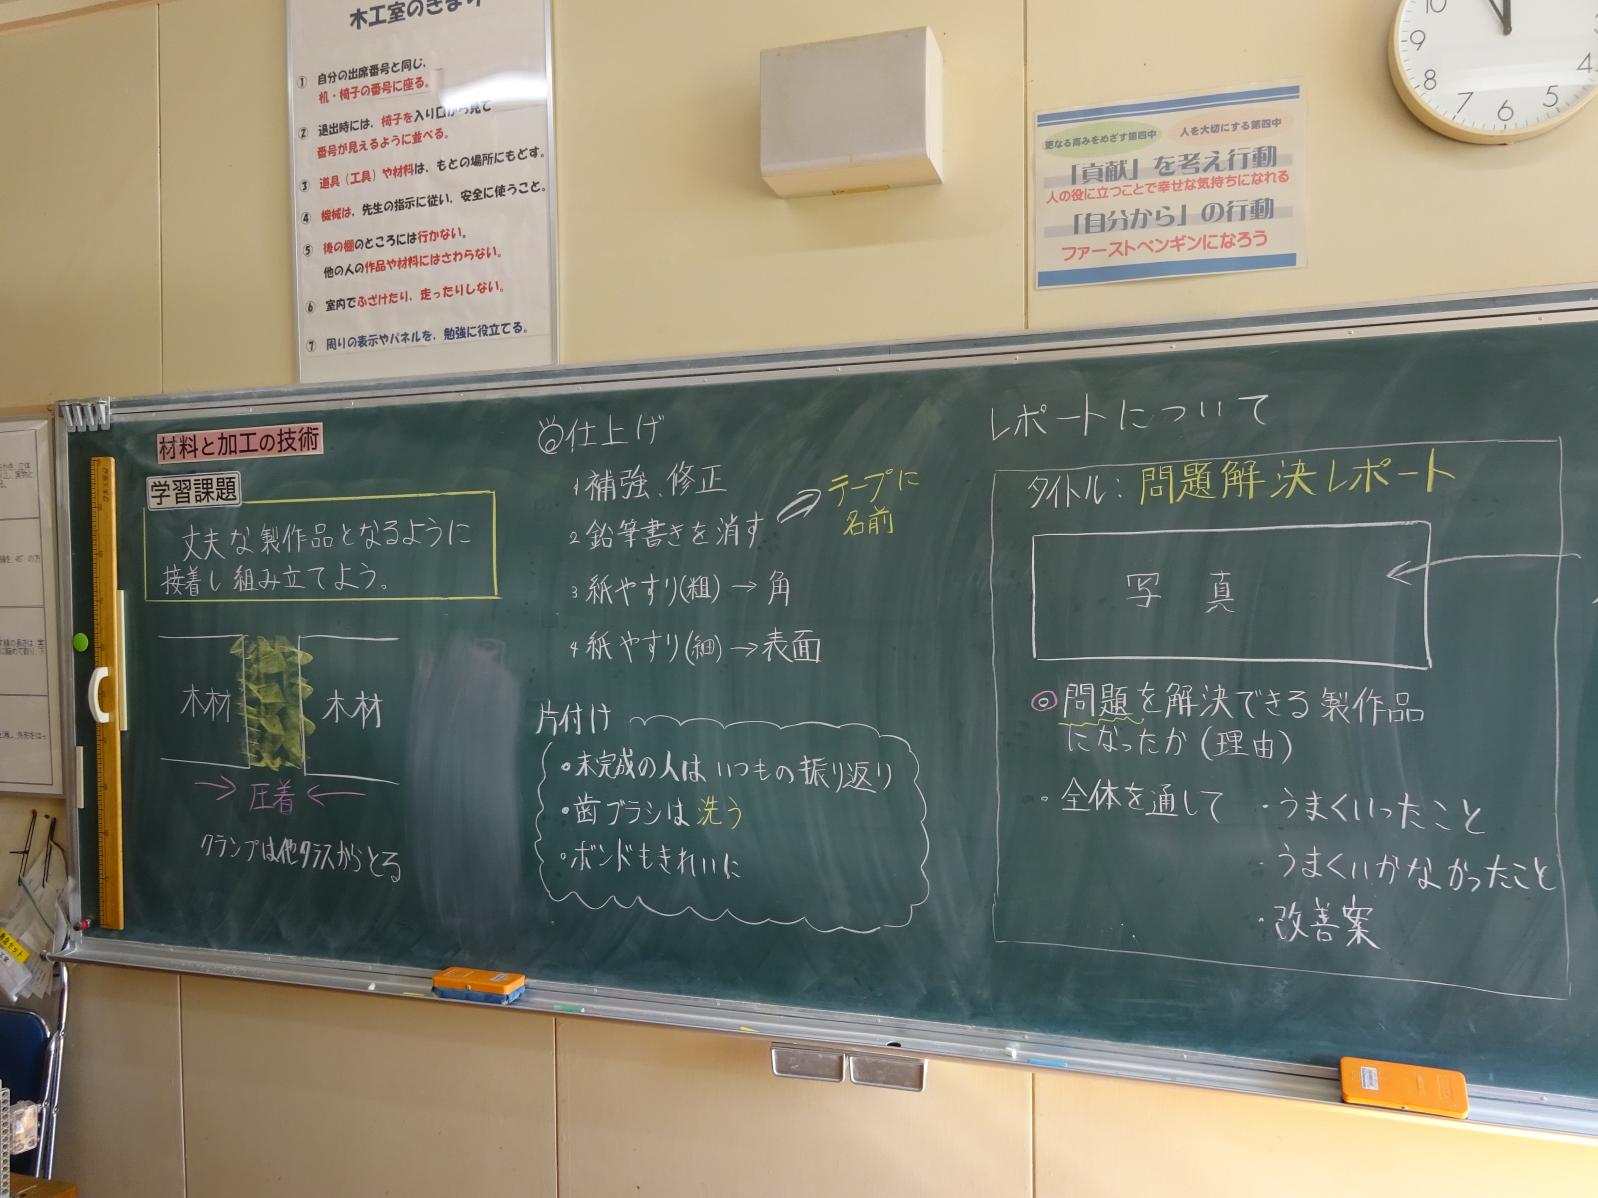 木工室のきまり
① 自分の出席番号と同じ、
机・椅子の番号に座る。
② 退出時には、椅子を入り口から見て
番号が見えるように並べる。
③ 道具（工具）や材料は、もとの場所にもどす。
④ 機械は、先生の指示に従い、安全に使うこと。
⑤ 後の棚のところには行かない。
他の人の作品や材料にはさわらない。
⑥ 室内でふざけたり、走ったりしない。
⑦ 周りの表示やパネルを、勉強に役立てる。
更なる高みをめざす第四中
人を大切にする第四中
「貢献」を考え行動
人の役に立つことで幸せな気持ちになれる
「自分から」の行動
ファーストペンギンになろう
10
9
8
7
6
5
4
材料と加工の技術
学習課題
丈夫な製作品となるように
接着し組み立てよう。
木材
木材
→圧着←
クランプは他クラスからとる
仕上げ
1 補強、修正
2 鉛筆書きを消す
テープに
名前
3 紙やすり(粗)→角
4 紙やすり(細)→表面
片付け
・未完成の人はいつもの振り返り
・歯ブラシは洗う
・ボンドもきれいに
レポートについて
タイトル：問題解決レポート
写真
◎問題を解決できる製作品
になったか(理由)
・全体を通して
・うまくいったこと
・うまくいかなかったこと
・改善案